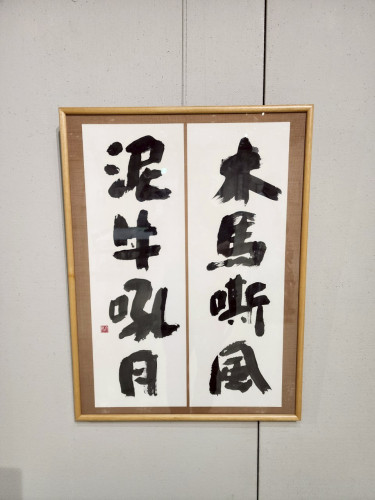 木馬嘶風
泥牛吼月